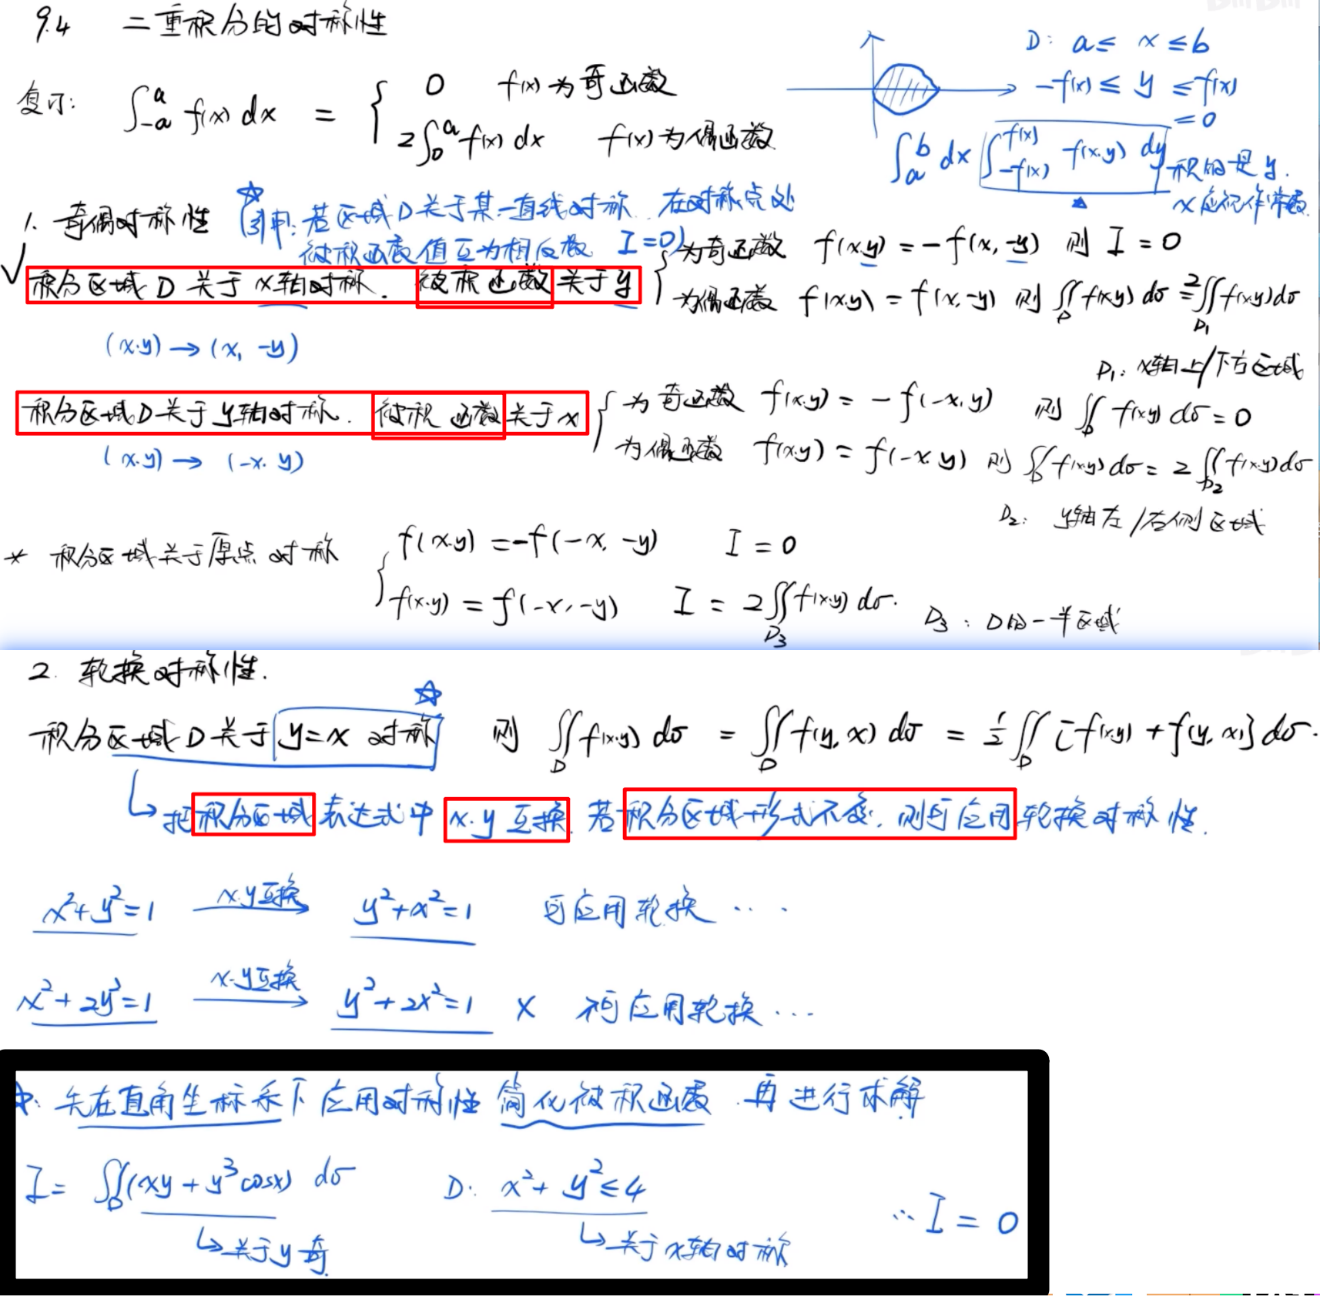 9.4 二重积分的对称性
复习: ∫_{-a}^{a} f(x) dx = { 0 f(x)为奇函数
2∫_0^a f(x) dx f(x)为偶函数
D: a ≤ x ≤ b
-f(x) ≤ y ≤ f(x)
= 0
∫_a^b dx ∫_{-f(x)}^{f(x)} f(x,y) dy 积的是y.
x应视作常数
1. 奇偶对称性 (引申: 若区域D关于某一直线对称. 在对称点处
被积函数值互为相反数 I=0)
积分区域D关于x轴对称. 被积函数关于y { 为奇函数 f(x,y) = -f(x,-y) 则 I = 0
为偶函数 f(x,y) = f(x,-y) 则 ∬_D f(x,y) dσ = 2∬_{D₁} f(x,y) dσ
(x,y) → (x, -y)
D₁: x轴上/下方区域
积分区域D关于y轴对称. 被积函数关于x { 为奇函数 f(x,y) = -f(-x,y) 则 ∬_D f(x,y) dσ = 0
为偶函数 f(x,y) = f(-x,y) 则 ∬_D f(x,y) dσ = 2∬_{D₂} f(x,y) dσ
(x,y) → (-x, y)
D₂: y轴左/右侧区域
* 积分区域关于原点对称 { f(x,y) = -f(-x, -y) I = 0
f(x,y) = f(-x, -y) I = 2∬_{D₃} f(x,y) dσ.
D₃: D的一半区域
2. 轮换对称性.
积分区域D关于 y=x 对称 则 ∬_D f(x,y) dσ = ∬_D f(y,x) dσ = ½∬_D [f(x,y) + f(y,x)] dσ.
↳ 把积分区域表达式中 x.y 互换. 若积分区域形式不变. 则可应用轮换对称性.
x²+y²=1 x.y互换 → y²+x²=1 可应用轮换 ····
x²+2y²=1 x.y互换 → y²+2x²=1 × 不可应用轮换 ···
☆: 先在直角坐标系下应用对称性 简化被积函数 再进行求解
I = ∬_D (xy + y³cosx) dσ D: x²+y² ≤ 4 ∴ I = 0
↳ 关于y奇 ↳ 关于x轴对称